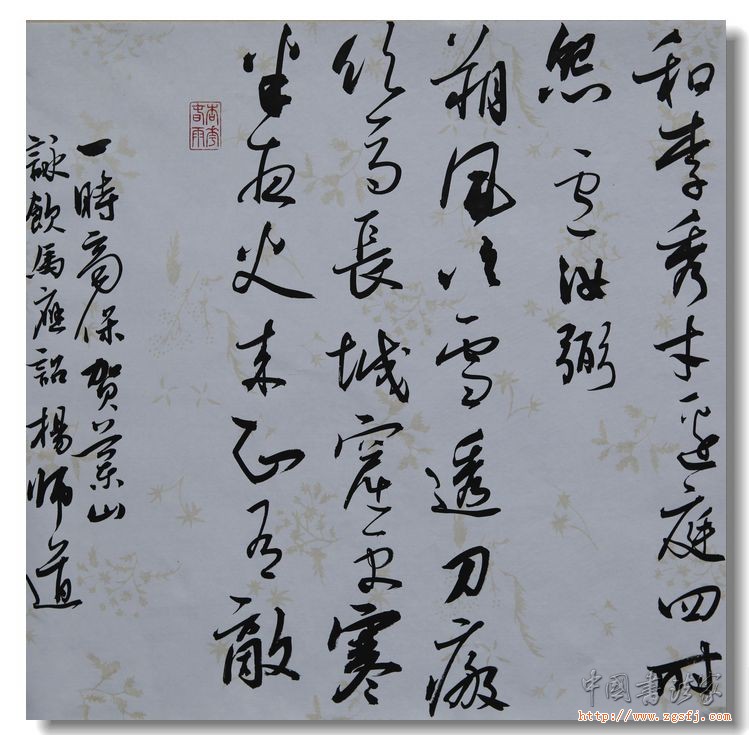 和李秀才邊庭四时
怨 卢汝弼
朔風吹雪透刀瘢
饮马長城窟更寒
半夜火来知有敵
一時齊保贺蘭山
詠飲馬應詔楊师道
中國書法家
http://www.zgsfj.com